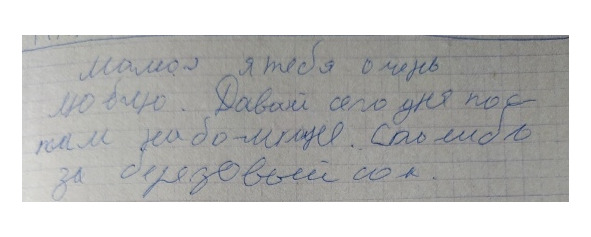 Мама я тебя очень
люблю. Давай сегодня пос-
пим побольше. Спасибо
за березовый сок.